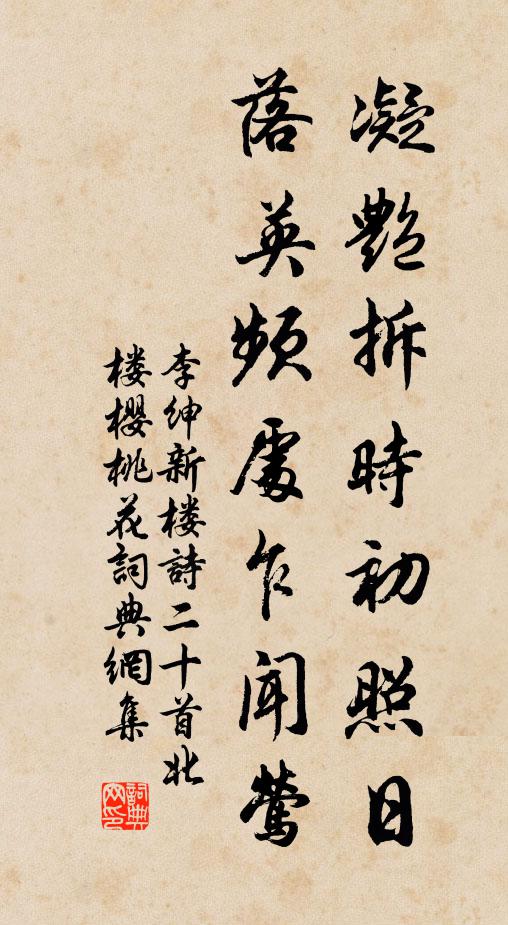 凝艷拆時初照日
落英頻處乍聞鶯
李紳新楼詩二十首北
楼櫻桃花詞典網集
詞典
网印